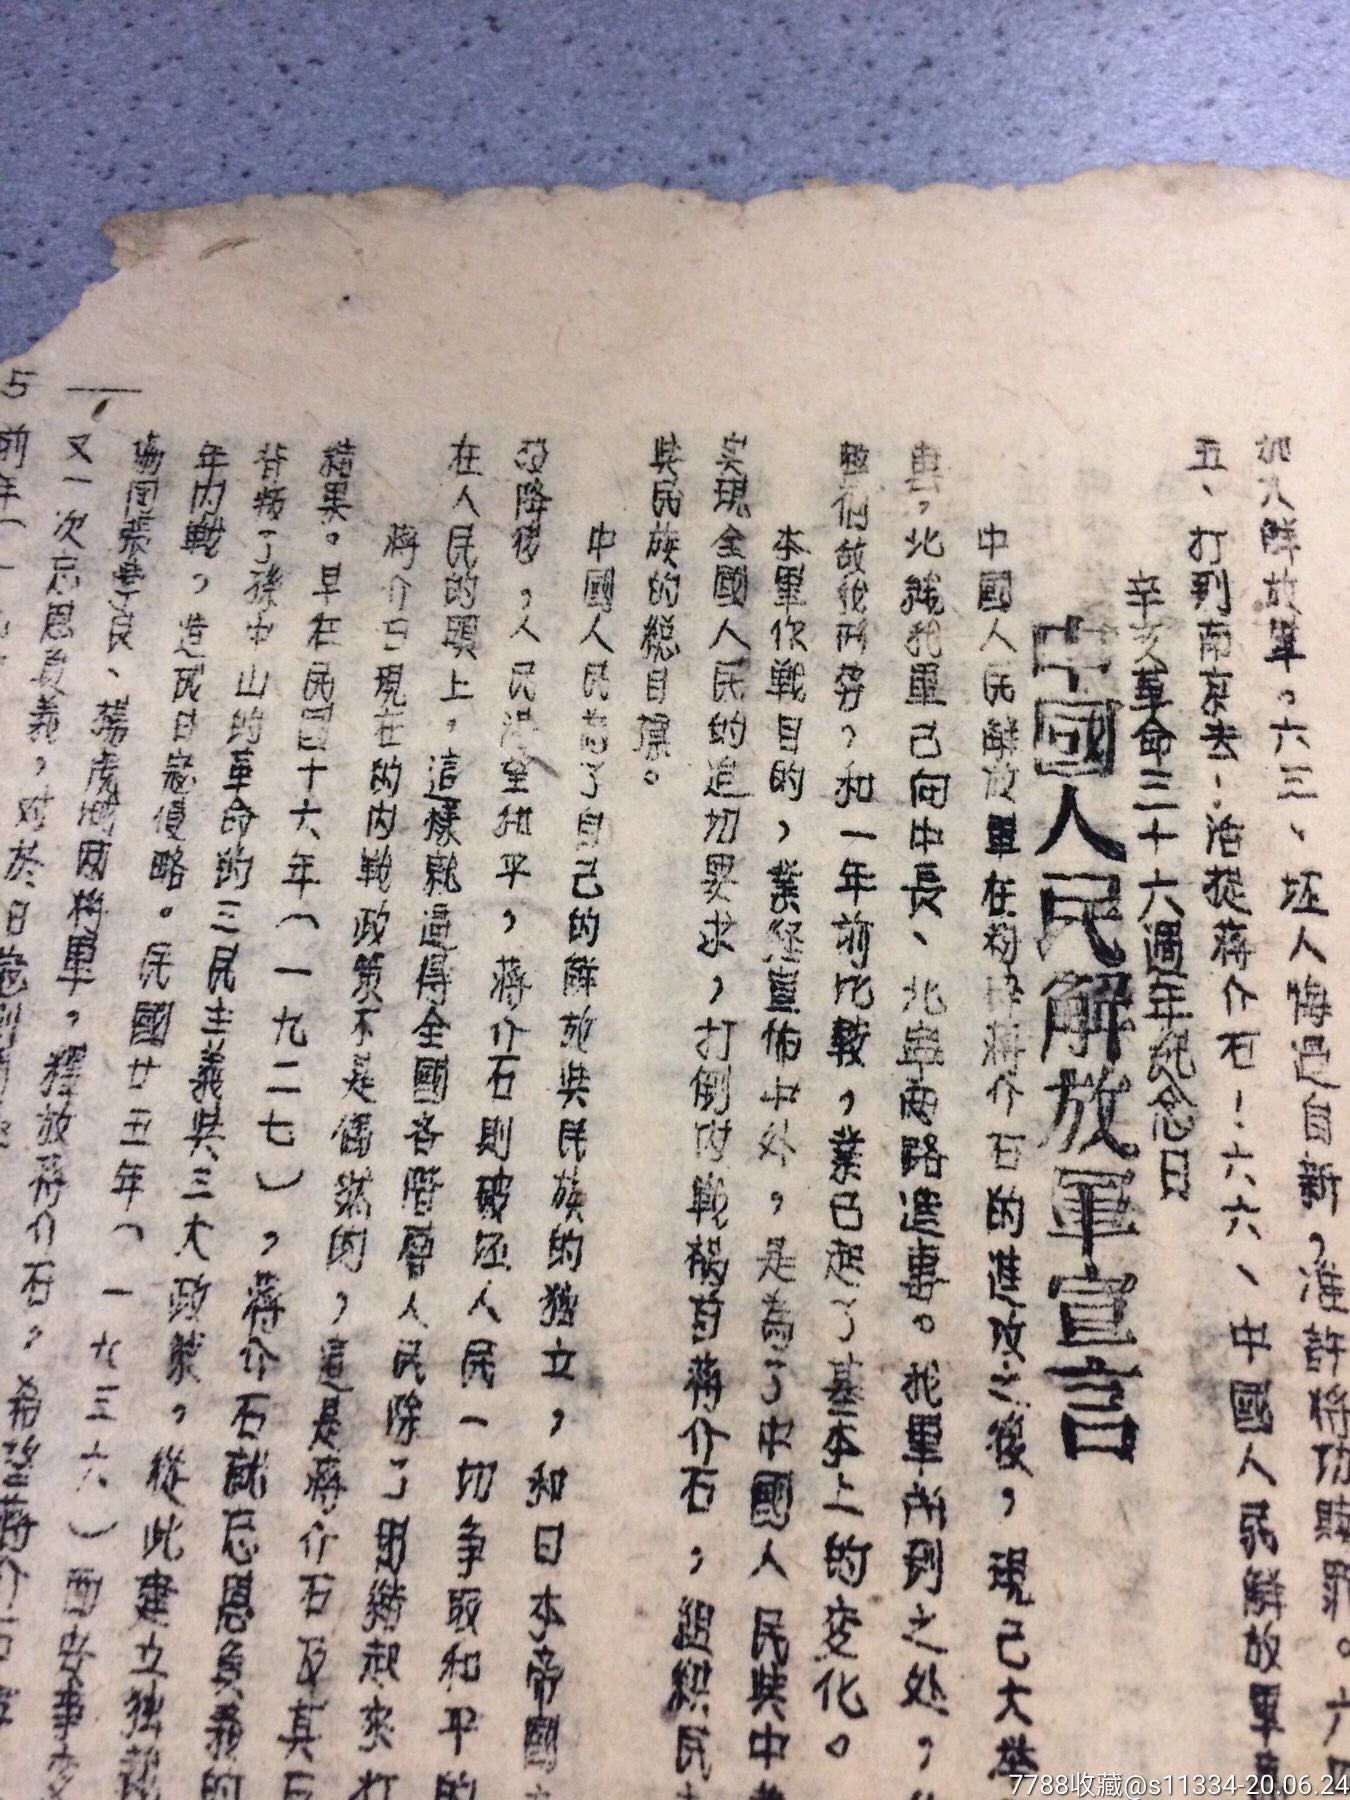 加入解放軍。六三、坯人悔過自新，准許將功贖罪。六四
五、打到南京去·活捉蔣介石！六六、中國人民解放軍
辛亥革命三十六週年紀念日
中國人民解放軍宣言
中國人民解放軍在粉碎蔣介石的進攻之後，現已大舉
，北線我軍已向中長、北寧兩路進。我軍所到之处，
，和一年前比較，業已起了基本上的变化。
本軍作战目的，業經宣佈中外，是為了中國人民與中
实現全國人民的迫切要求，打倒內战禍首蔣介石，組織民
與民族的總目標。
中國人民為了自己的解放與民族的獨立，和日本帝國
投降後，人民渴望和平，蔣介石則破坯人民一切争取和平的
在人民的頭上。這樣就逼得全國各階層人民除了團結起來打
蔣介石現在的內战政策不是偶然的，這是蔣介石及其
結果。早在民國十六年（一九二七），蔣介石就忘恩負義的
背叛了孫中山的革命的三民主義與三大政策，從此建立独裁
年內戰，造成日寇侵略。民國廿五年（一九三六）西安事变
協同張學良、楊虎城两將軍，釋放蔣介石，希望蔣介石
又一次忘恩負義，对於日寇則
5 前年（一